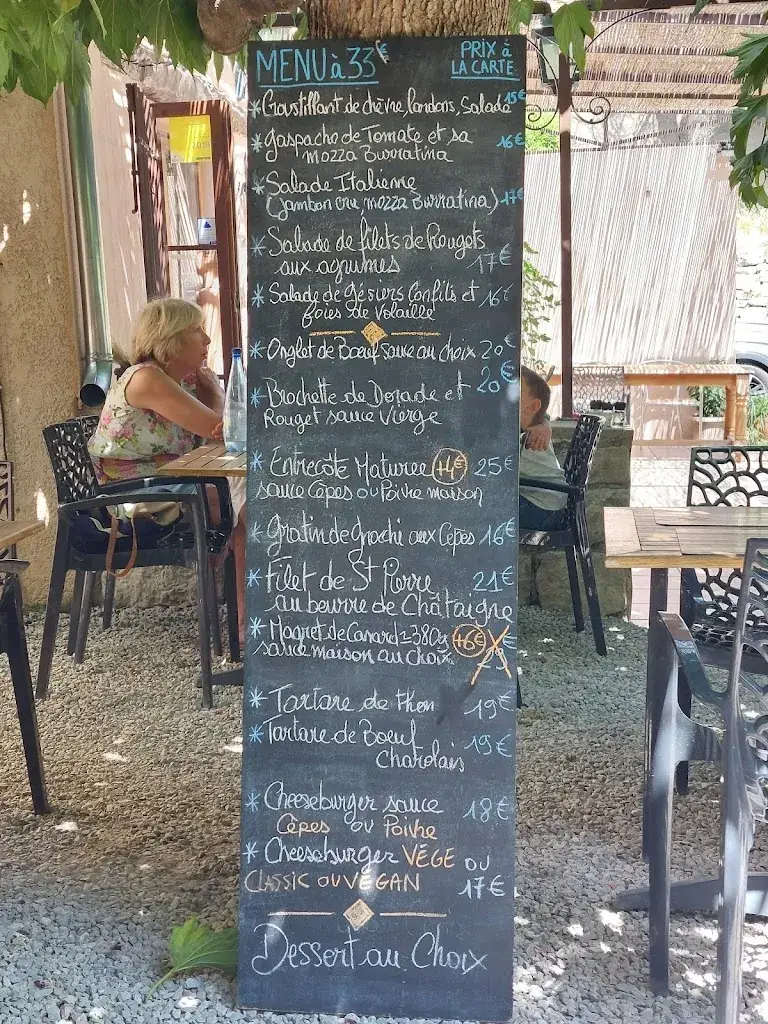 MENU à 33€
PRIX à
LA CARTE
* Croustillant de chèvre, lardons, Salade 15€
* Gaspacho de Tomate et sa 16€
mozza Burratina
* Salade Italienne
(jambon cru, mozza Burratina) 17€
* Salade de filets de Rougets
aux agrumes 17€
* Salade de Gésiers Confits et 16€
foies de Volaille
* Onglet de Boeuf sauce au choix 20€
* Brochette de Dorade et 20€
Rouget sauce Vierge
* Entrecôte Maturée +4€ 25€
sauce Cèpes ou Poivre maison
* Gratin de Gnochi aux Cèpes 16€
* Filet de St Pierre 21€
au beurre de Châtaigne
* Magret de Canard ± 380g +6€
sauce maison au choix
* Tartare de thon 19€
* Tartare de Boeuf 19€
Charolais
* Cheeseburger sauce 18€
Cèpes ou Poivre
* Cheeseburger VÉGÉ OU
CLASSIC OU VÉGAN 17€
Dessert au Choix